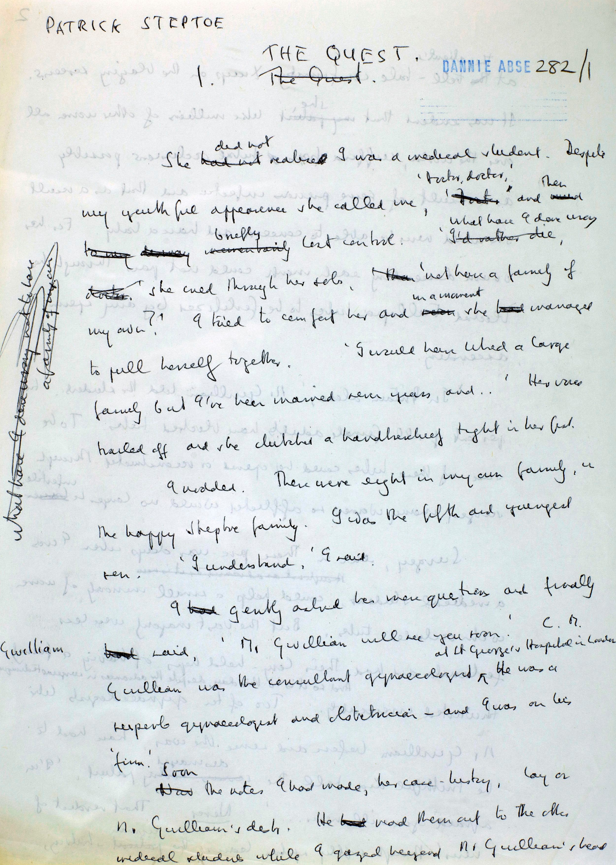 PATRICK STEPTOE
THE QUEST.
1. The Quest.
DANNIE ABSE 282/1
She had not did not realised I was a medical student. Despite
my youthful appearance she called me, 'Doctor, doctor,' and then
briefly lost control. 'I'd rather die, what have I done wrong
she cried through her sobs, 'not to have a family of
my own?' I tried to comfort her and in a moment soon she had managed
to pull herself together. 'I would have liked a large
family but I've been married seven years and..' Her voice
trailed off and she clutched a handkerchief tight in her fist.
I nodded. There were eight in my own family, in
the happy Steptoe family. I was the fifth and youngest
son. 'I understand,' I said.
I had gently asked her more questions and finally
had said, 'Mr Gwillian will see you soon.' C. M.
Gwilliam
at St George's Hospital in London
Gwilliam was the consultant gynaecologist He was a
superb gynaecologist and obstetrician – and I was on his
'firm.' Soon
the notes I had made, her case-history, lay on
Mr Gwilliam's desk. He had read them out to the other
medical students while I gazed beyond Mr Gwilliam's head
what have I done wrong not to have
a family of my own